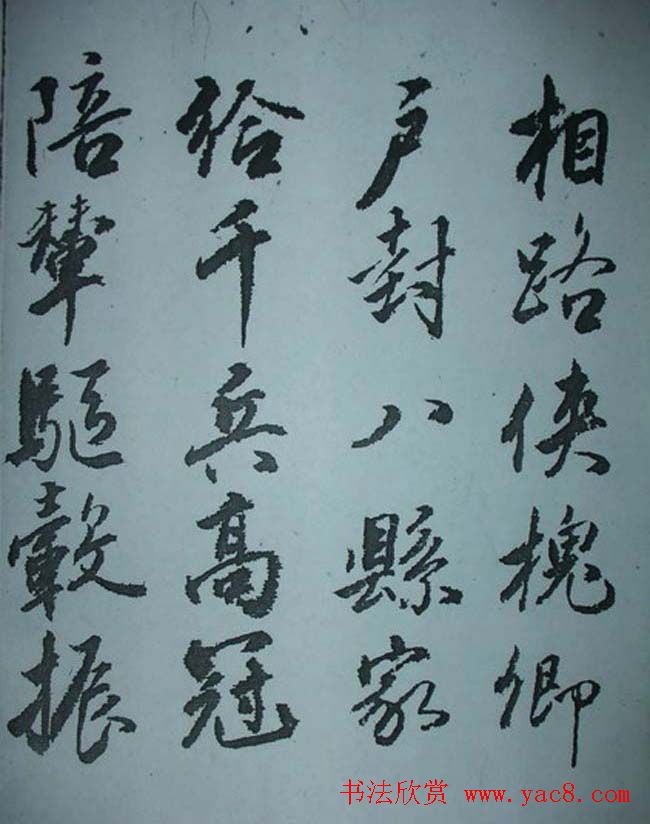 相路侠槐卿
户封八縣家
给千兵高冠
陪輦驅轂振
书法欣赏 www.yac8.com